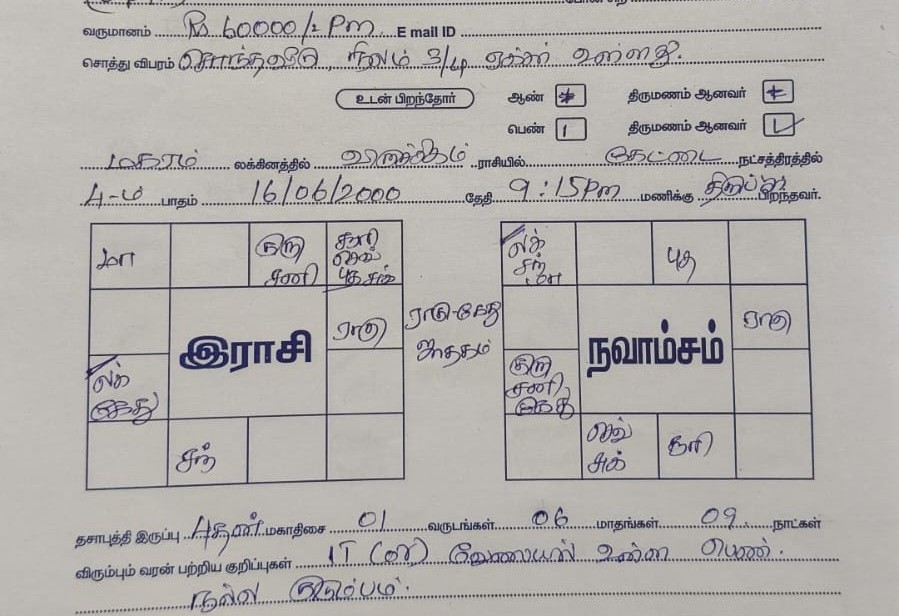 வருமானம் Rs 60000/2 Pm E mail ID
சொத்து விபரம் சொந்தவீடு, நிலம் 3/4 ஏக்கர் உள்ளது.
உடன் பிறந்தோர் ஆண் திருமணம் ஆனவர்
பெண் 1 திருமணம் ஆனவர்
மகரம் லக்கினத்தில் விருச்சிகம் ராசியில் கேட்டை நட்சத்திரத்தில்
4-ம் பாதம் 16/06/2000 தேதி 9:15Pm மணிக்கு பிறந்தவர்.
மா குரு சனி சூரி செவ் புத சுக்
லக் சந் மா புத
இராசி ராகு
ராகு-கேது ஜாதகம்
நவாம்சம் ராகு
லக் கேது
குரு சனி கேது
சந்
செவ் சுக் சூரி
தசாபுத்தி இருப்பு புதன் மகாதிசை 01 வருடங்கள் 06 மாதங்கள் 09 நாட்கள்
விரும்பும் வரன் பற்றிய குறிப்புகள் IT (or) வேலையில் உள்ள பெண்.
நல்ல குடும்பம்.